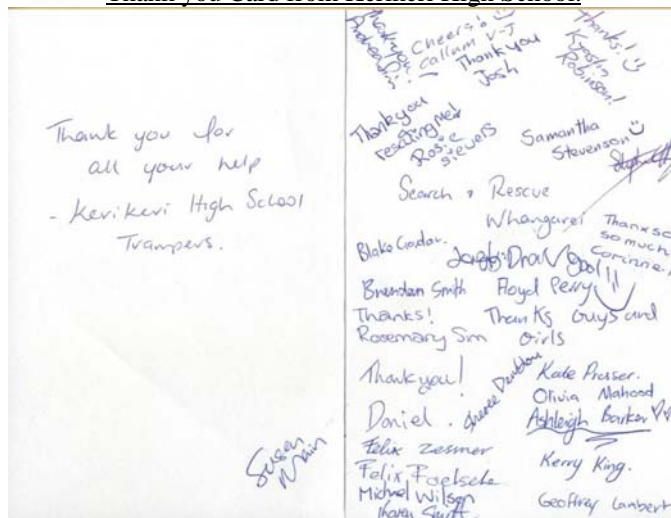 Thank you Card from Kerikeri High School:
Thank you for
all your help
- Kerikeri High School
Trampers.
Susan
Main
Thank you
Cheers!
Callum V-J
Thank you
Josh
Thanks!
Robinson!
Thank you
rescuing me!
Rosie
Sievers
Samantha
Stevenson
Search & Rescue
Whangarei
Thanx so
so much
Corinne
Blake
Good!!!
Brendan Smith
Floyd Perry
Thanks!
Rosemary Sim
Thanks Guys and
Girls
Thank you!
Kate Prosser.
Olivia Mahood
Daniel.
Ashleigh Barker
Felix Zesmer
Felix Foelsche
Kerry King.
Michael Wilson
Geoffrey Lambert